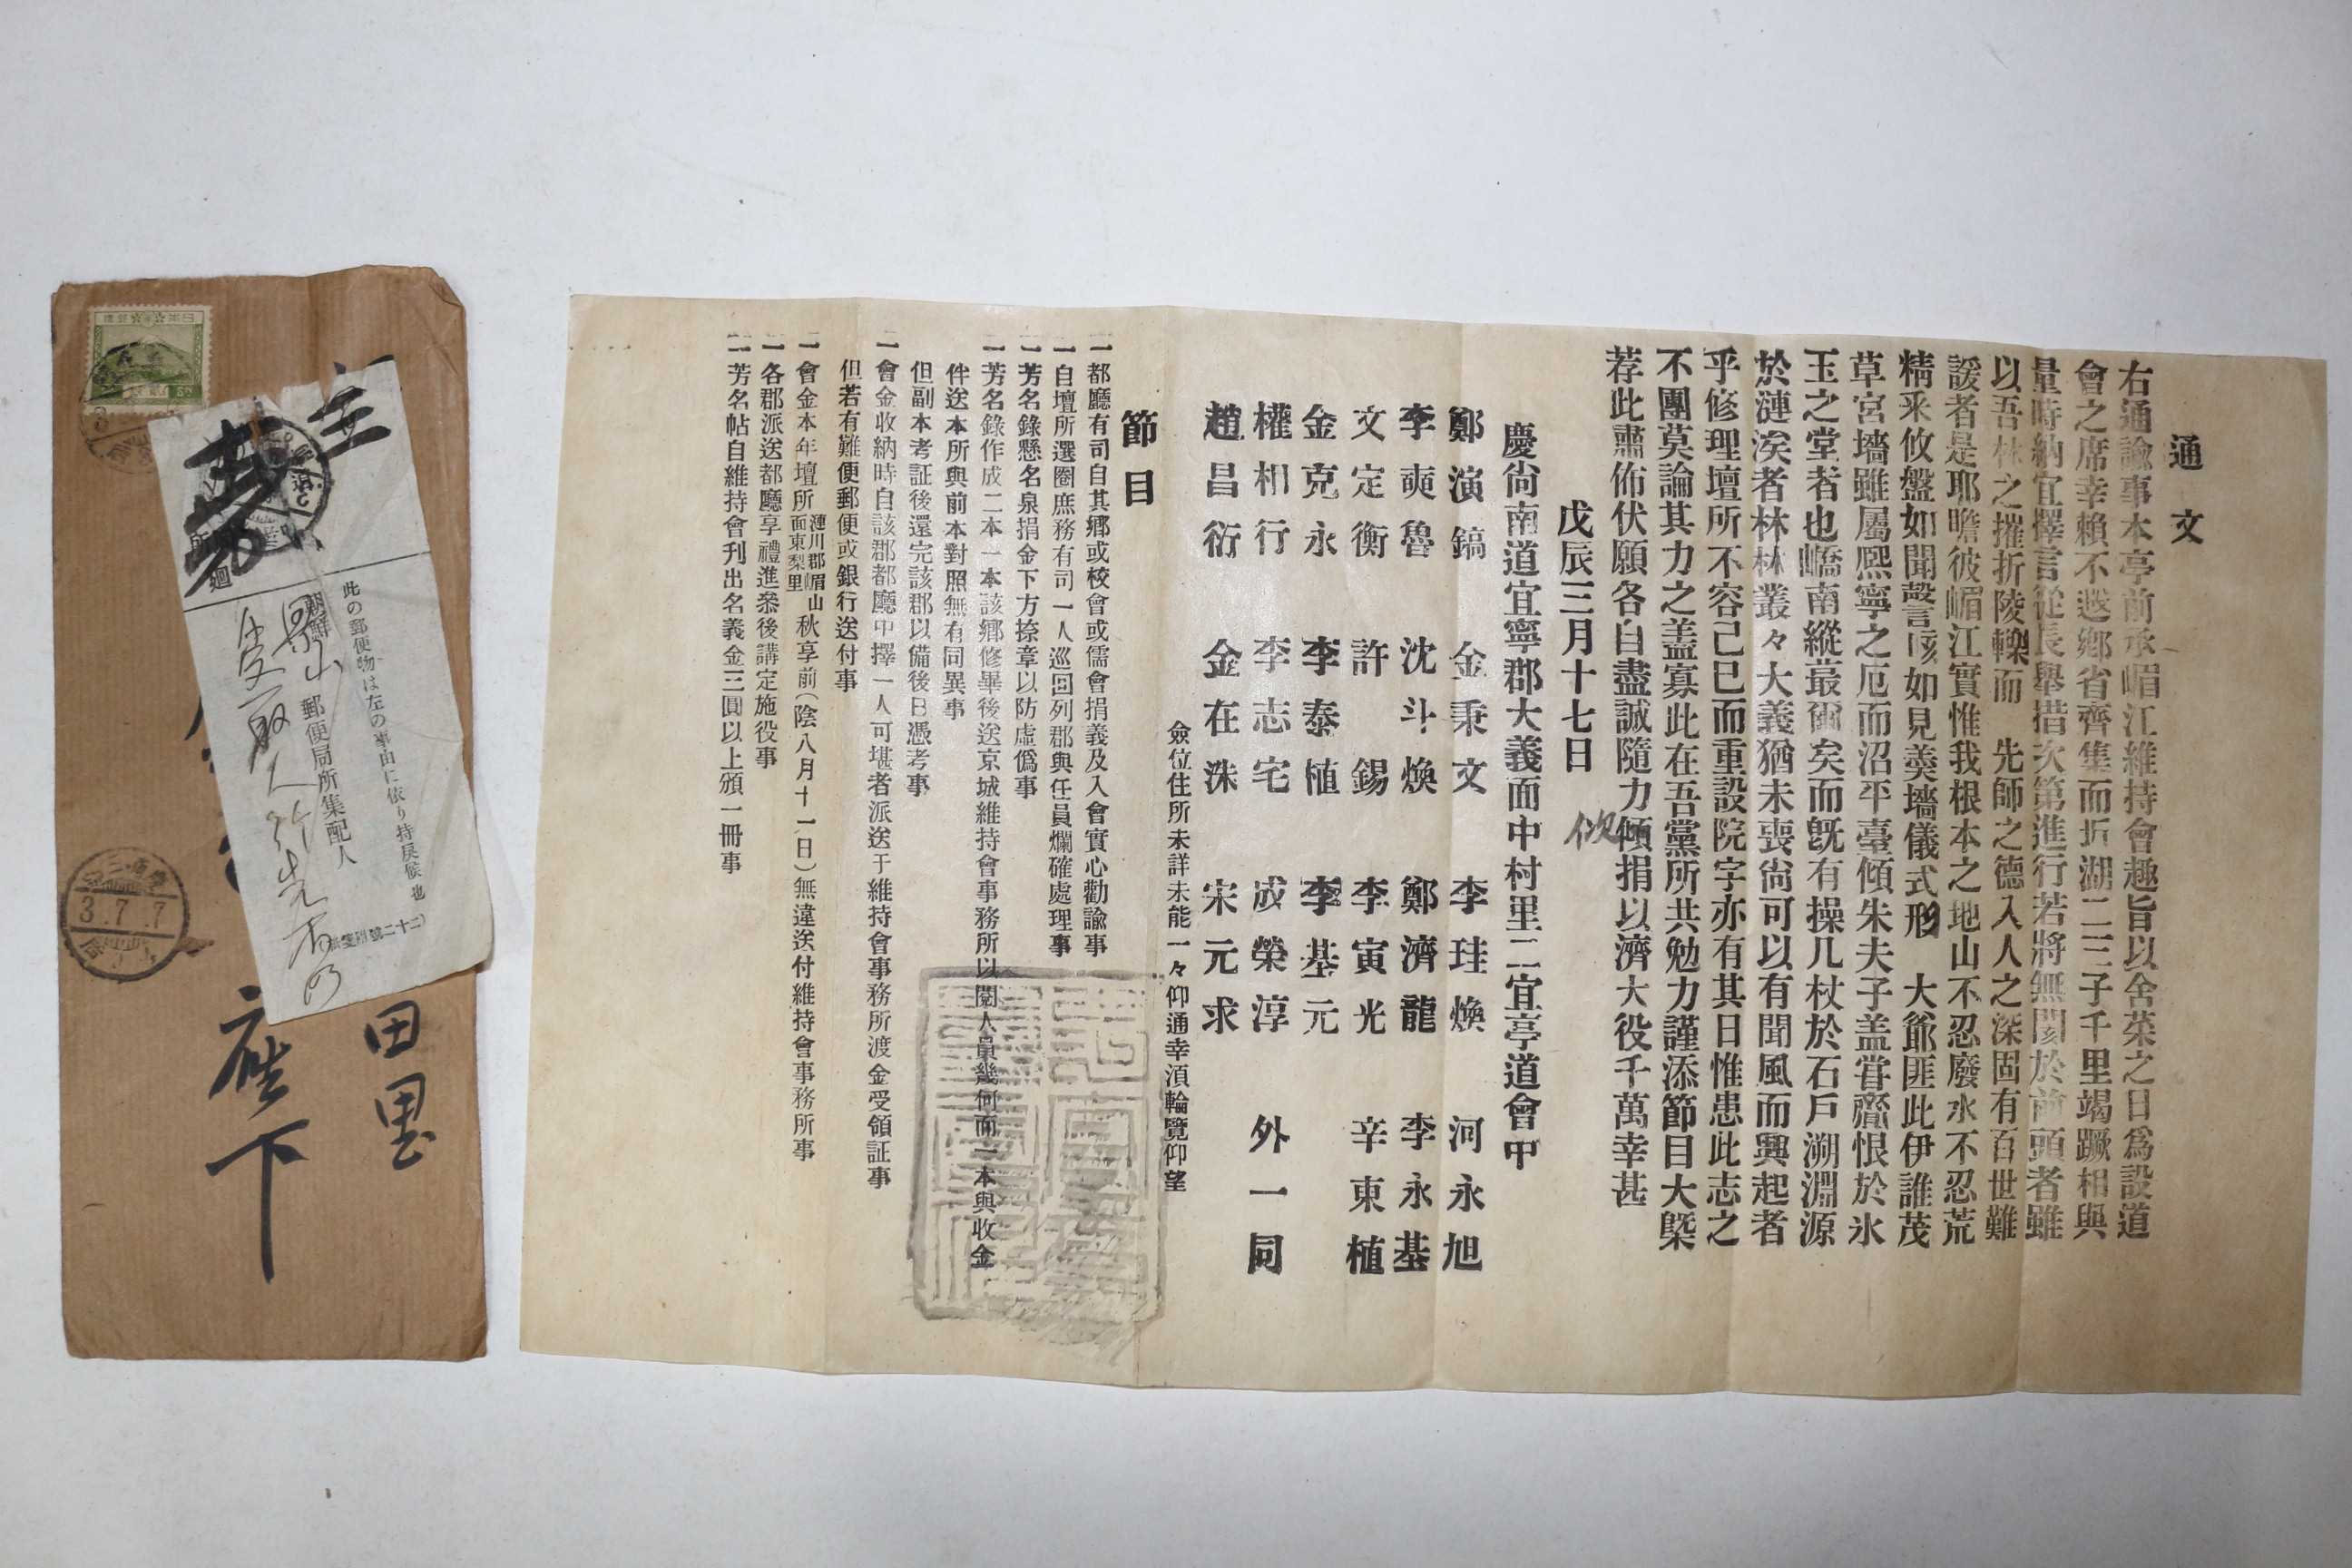 通文
右通諭事本亭前承嵋江維持會趣旨以舍菜之日爲設道
會之席幸賴不遐鄕省齊集而圻湖二三子千里竭蹶相與
量時納宜擇言從長擧措次第進行若將無閡於前頭者雖
以吾林之摧折陵轢而 先師之德入人之深固有百世難
諼者是耶瞻彼嵋江實惟我根本之地山不忍廢水不忍荒
精采攸盤如聞謦言咳如見羹墻儀式形 大爺匪此伊誰茂
草宮墻雖屬熙寧之厄而沼平臺傾朱夫子盖甞齎恨於氷
玉之堂者也嶠南縱蕞爾矣而旣有操几杖於石戶溯淵源
於漣涘者林林叢々大義猶未喪尙可以有聞風而興起者
乎修理壇所不容已巳而重設院宇亦有其日惟患此志之
不團莫論其力之盖寡此在吾黨所共勉力謹添節目大槩
荐此肅佈伏願各自盡誠隨力傾捐以濟大役千萬幸甚
戊辰三月十七日
慶尙南道宜寧郡大義面中村里二宜亭道會中
鄭演鎬 金秉文 李珪煥 河永旭
李𡘊魯 沈斗煥 鄭濟龍 李永基
文定衡 許錫 李寅光 辛東植
金克永 李泰植 李基元
權相行 李志宅 成榮淳 外一同
趙昌衍 金在洙 宋元求
僉位住所未詳未能一々仰通幸湏輪覽仰望
節目
一都廳有司自其鄕或校會或儒會捐義及入會實心勸諭事
一自壇所選圈庶務有司一人巡回列郡與任員爛確處理事
一芳名錄懸名泉捐金下方捺章以防虛僞事
一芳名錄作成二本一本該鄕修畢後送京城維持會事務所以閱人員幾何而一本與收金
件送本所與前本對照無有同異事
但副本考証後還完該郡以備後日憑考事
一會金收納時自該郡都廳中擇一人可堪者派送于維持會事務所渡金受領証事
但若有難便郵便或銀行送付事
一會金本年壇所漣川郡嵋山面東梨里秋享前（陰八月十一日）無違送付維持會事務所事
一各郡派送都廳享禮進叅後講定施役事
一芳名帖自維持會刊出名義金三圓以上頒一冊事
此の郵便物は左の事由に依り持戾候也
郵便局所集配人
田里
座下
3.7.7